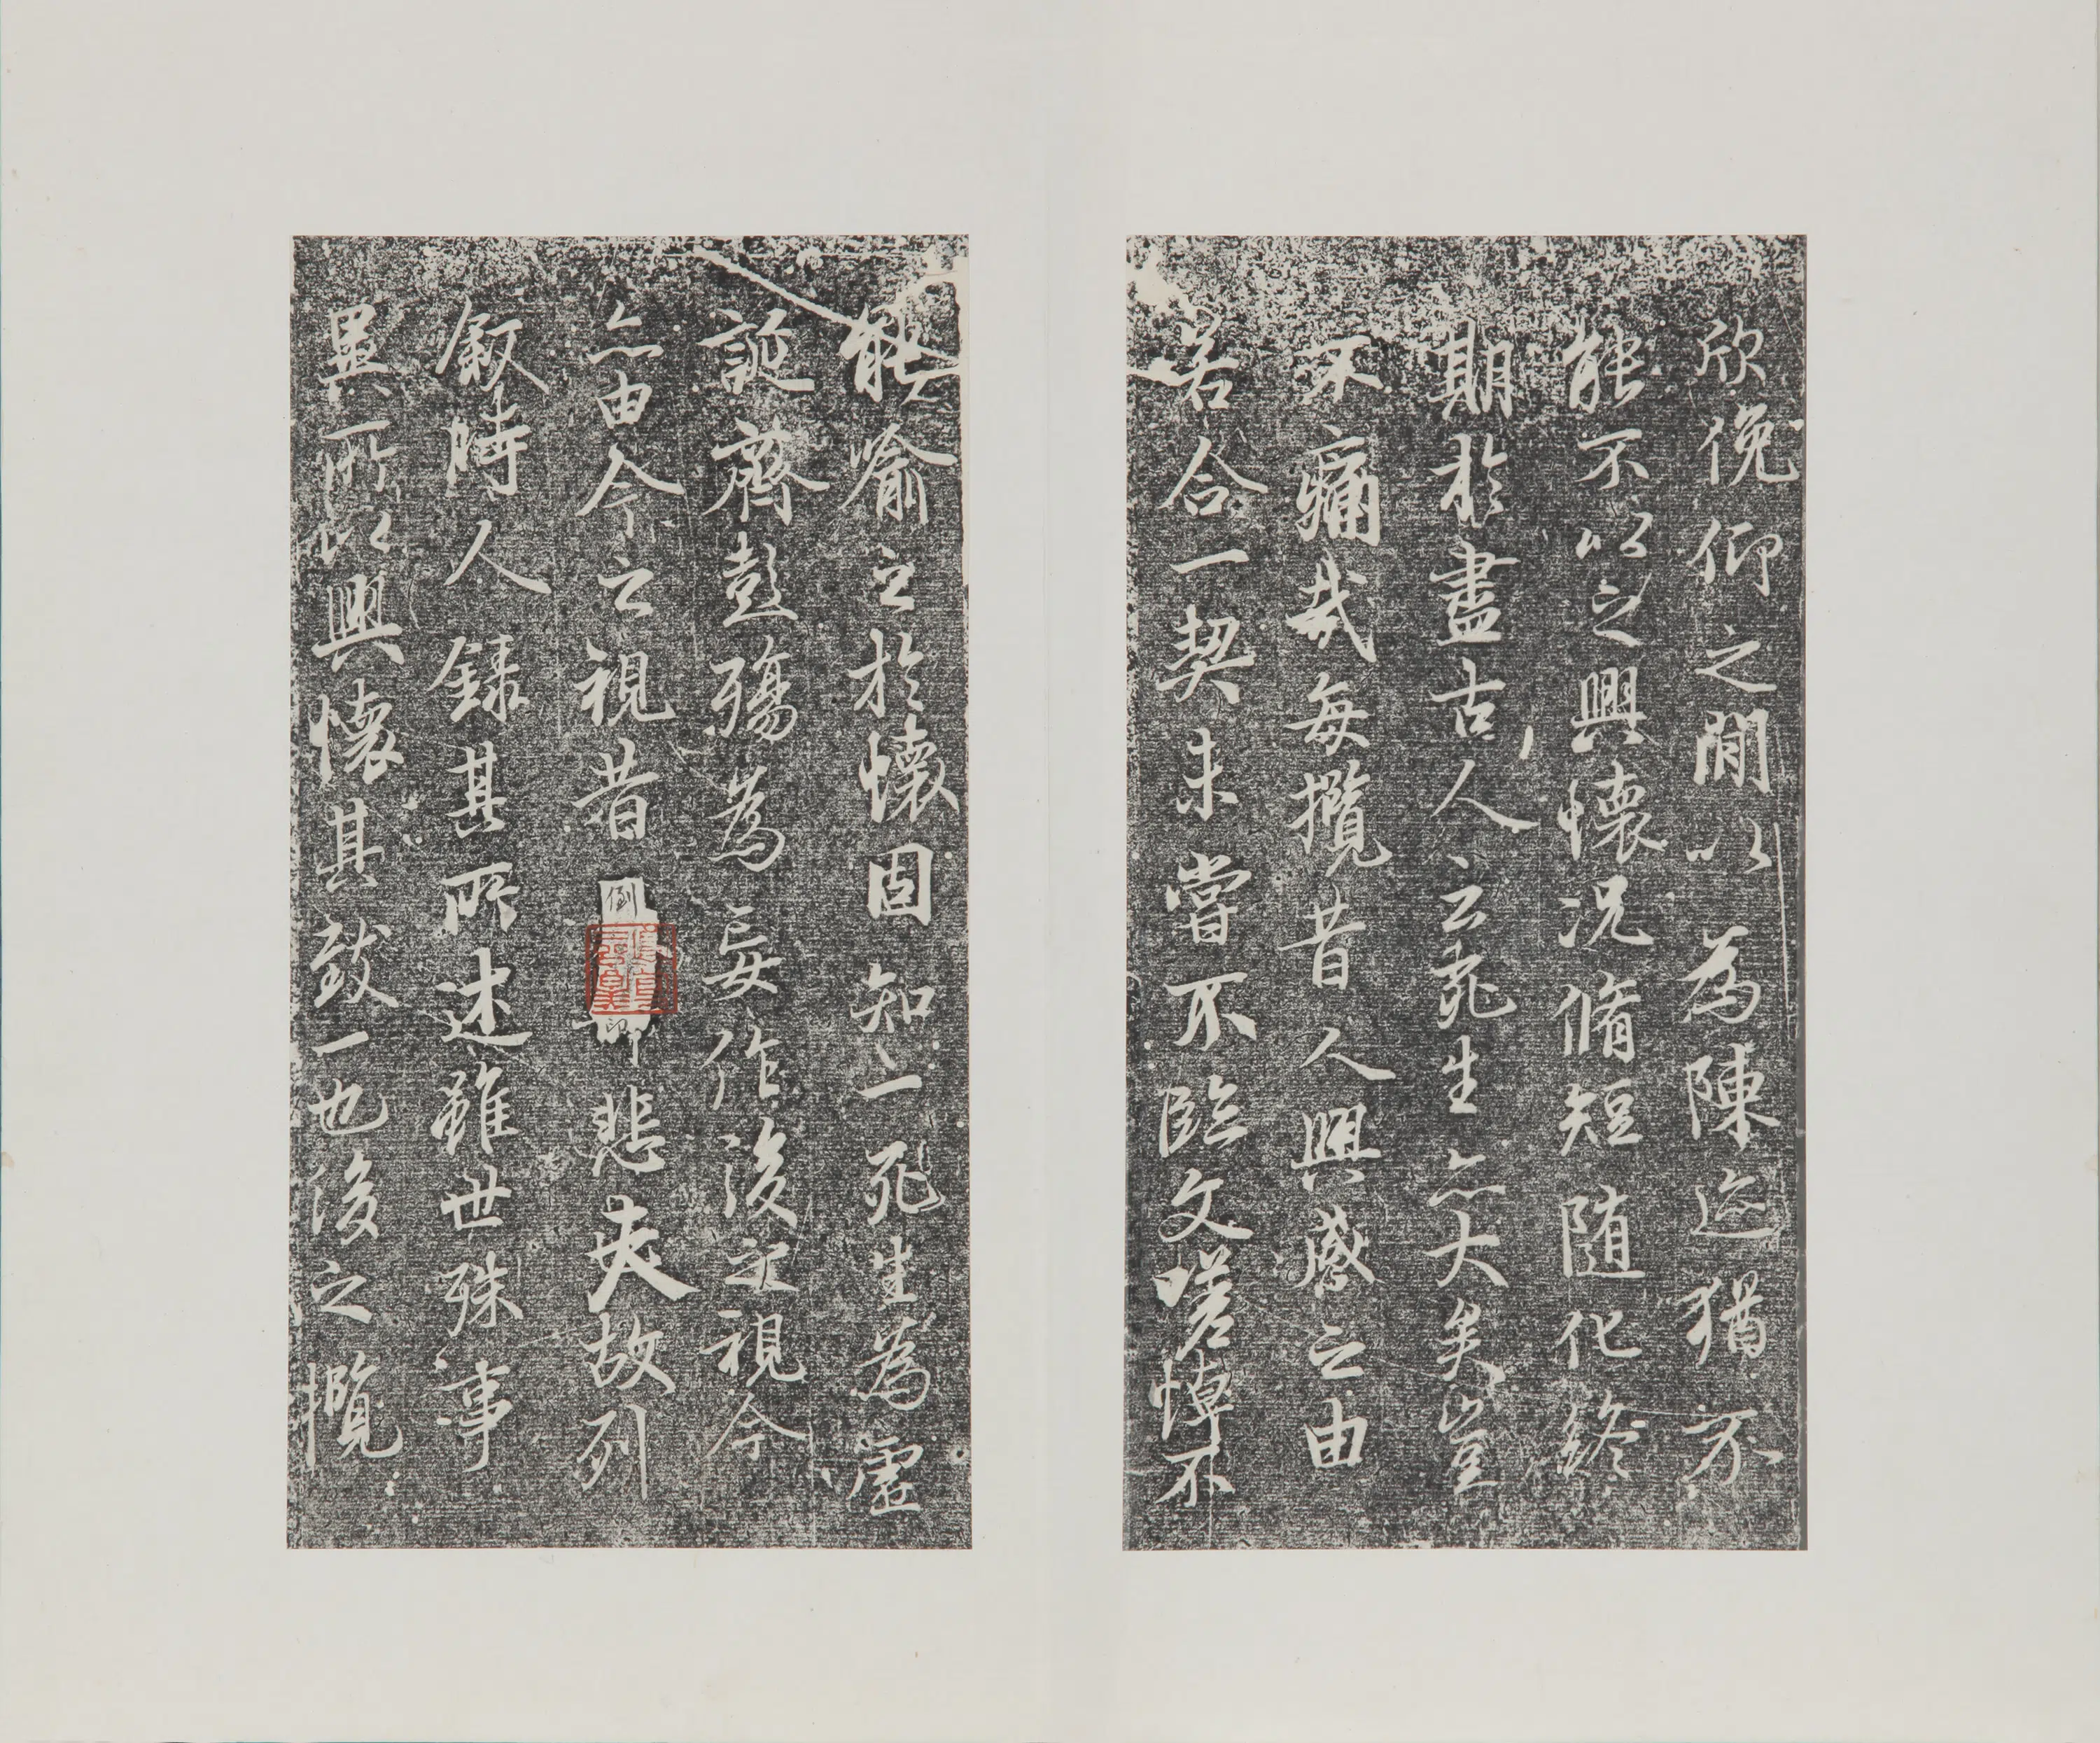 欣俛仰之閒以為陳迹猶不
能不以之興懷況脩短随化終
期於盡古人云死生亦大矣豈
不痛哉每攬昔人興感之由
若合一契未嘗不臨文嗟悼不
能喻之於懷固知一死生為虛
誕齊彭殤為妄作後之視今
亦由今之視昔倒印悲夫故列
敘時人錄其所述雖世殊事
異所以興懷其致一也後之攬